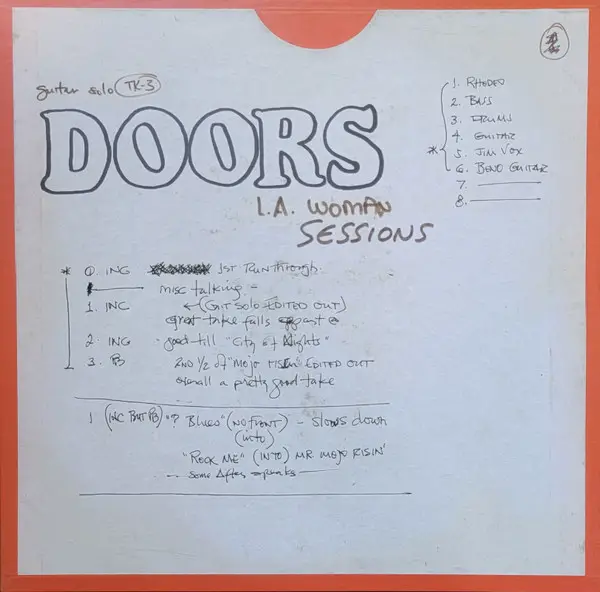 guitar solo TK-3
DOORS
L.A. WOMAN
SESSIONS
1. RHODES
2. BASS
3. DRUMS
4. GUITAR
* 5. JIM VOX
6. BEND GUITAR
7. ———
8. ———
* 0. ING 1ST RUNThrough.
misc talking -
1. INC ←(GIT SOLO EDITED OUT)
great take falls apart @
2. ING good till "City of Nights"
3. PB 2ND 1/2 of "MOJO RISIN" EDITED OUT
overall a pretty good take
1 (INC BUT PB) "? Blues" (NO FRONT) - slows down
(into)
"ROCK ME" (INTO) MR MOJO RISIN'
-- some After